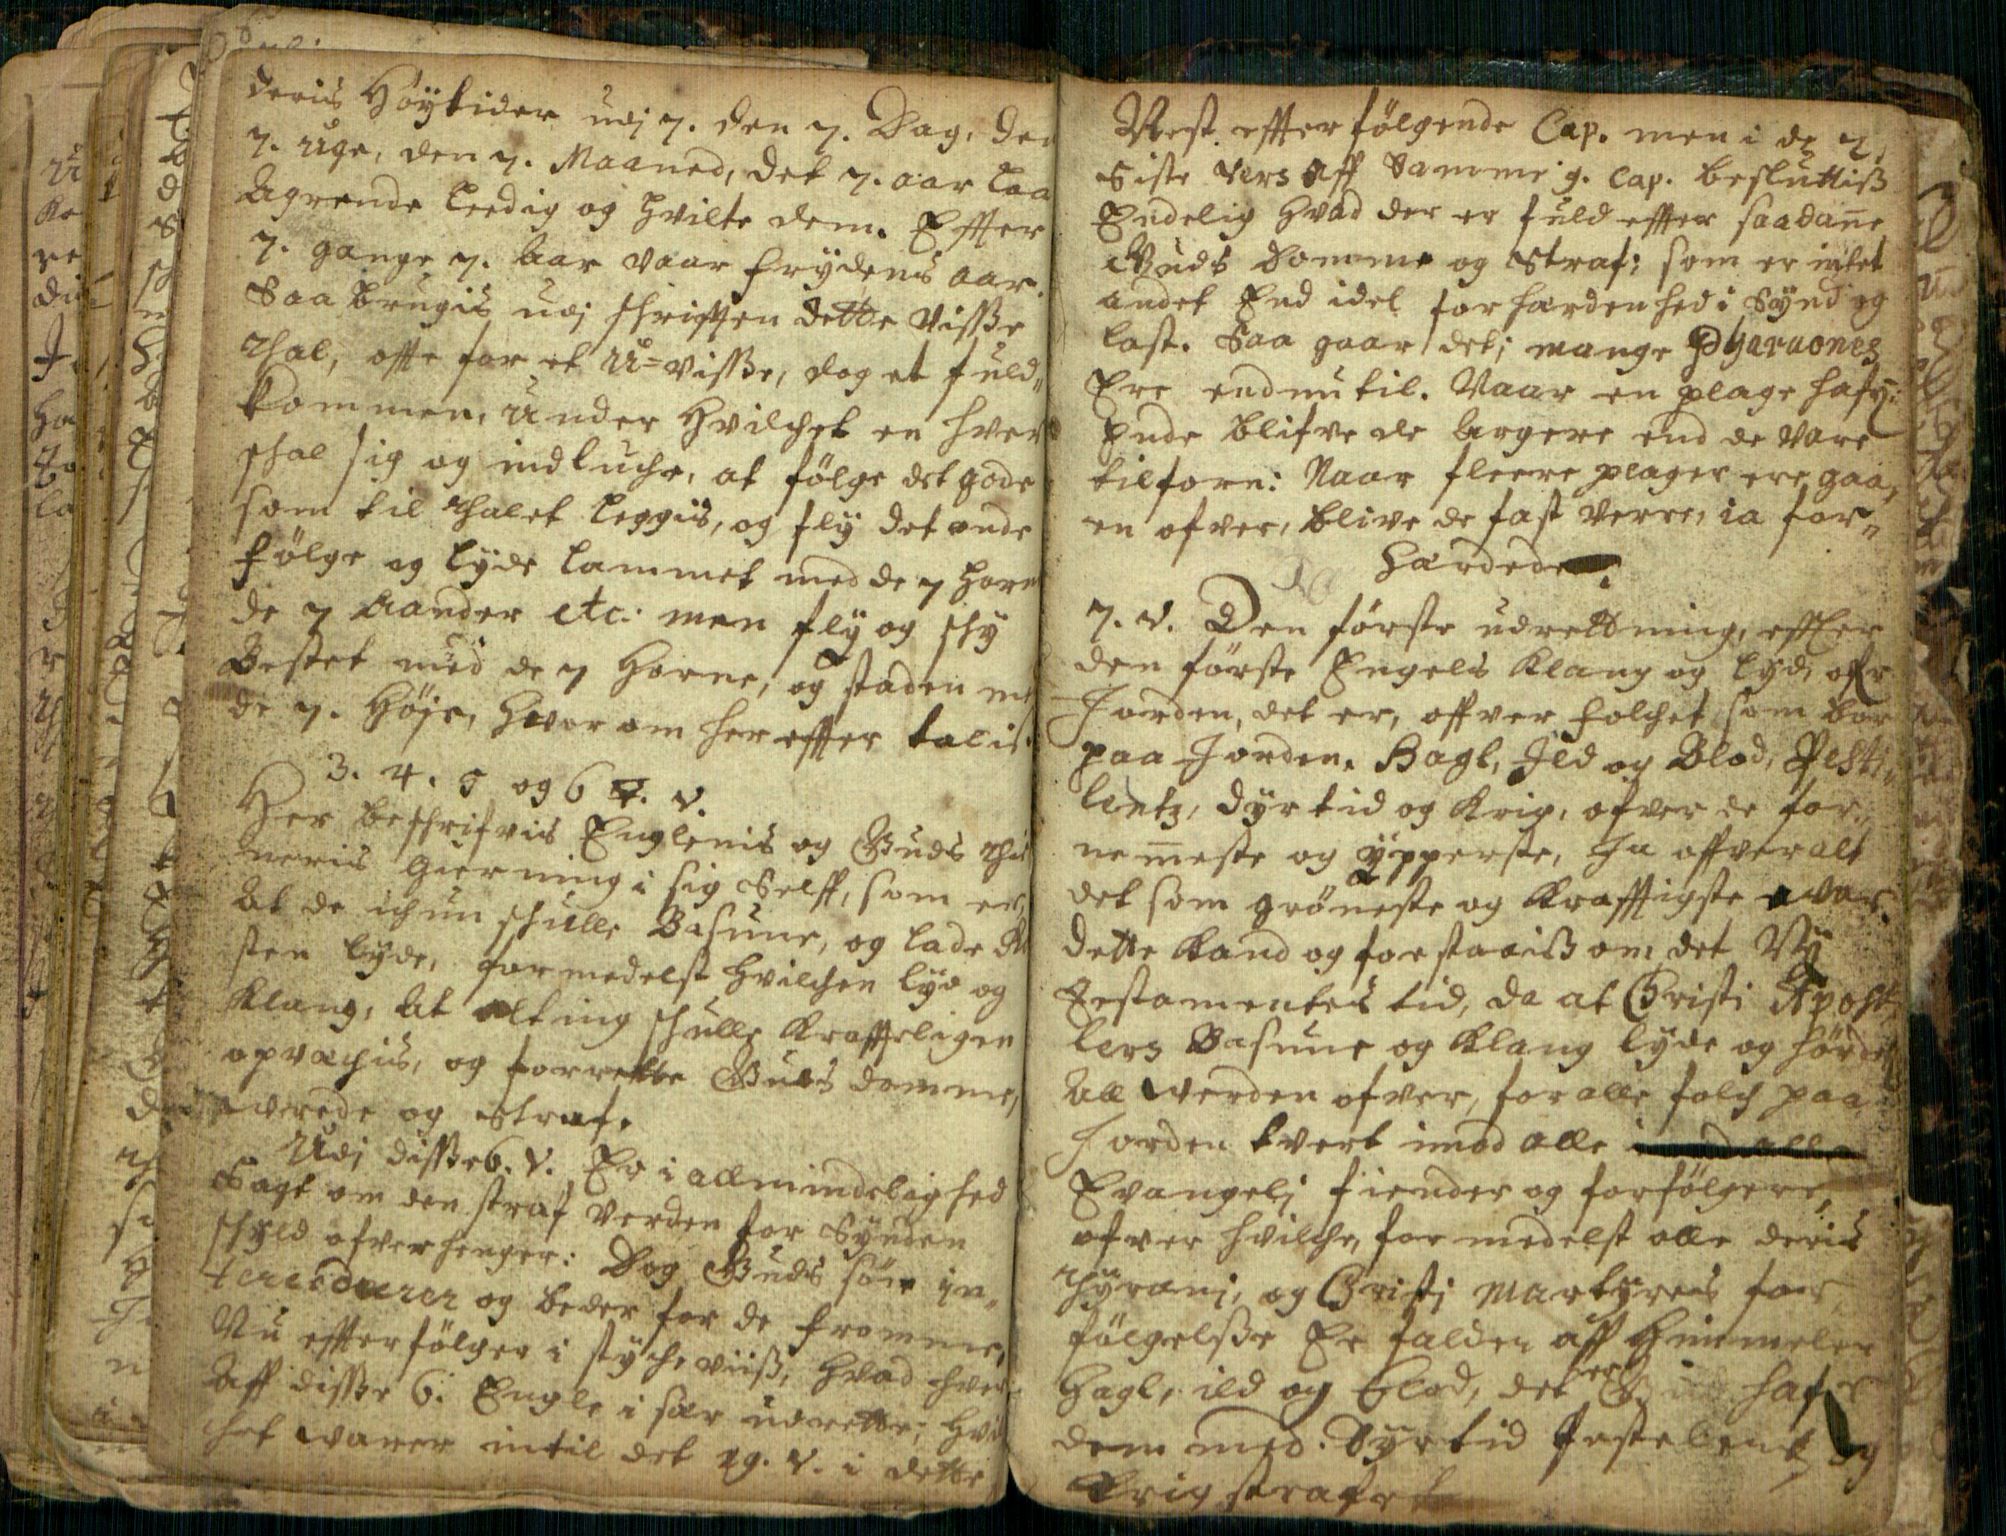 deris Höÿtider udj 7. den 7. Dag, den
7. Uge, den 7. Maaned, det 7. aar laa
Agrende leedig og hvilte dem. Effter
7. gange 7. Aar vaar frÿdens aar.
Saa brugis udj schrifften dette visse
thal, offte for et U=visse, dog et fuld"
kommen, Under hvilchet en hver
schal sig og indluche, at fölge det gode
som til thalet leggis, og flÿ det onde
fölge og lÿde Lammet med de 7 horn
de 7 Aander etc: men flÿ og schÿ
Bestet med de 7 Horne, og staden med
de 7. Höje, hvor om her effter talis.
3. 4. 5 og 6 v.
Her beschrifvis Englenis og Guds
neris gierning i sig Selff, som er,
At de ichun schulle Basune, og lade
sten lÿde, formedelst hvilchen lÿd og
Klang, At alting schulle Kraffteligen
opvechis, og forrette Guds domme,
vrede og straf.
Udj disse 6. v. Er i allmindelighed
Sagt om den straf verden for Sÿnden
schÿld ofverhenger: Dog Guds sön in"
tercederer og beder for de fromme,
Nu effterfölger i stÿcheviiß, hvad hver
Aff disse 6. Engle i sær udrette; hvil
chet varer intil det 19. v. i dette
Nest effterfölgende Cap. men i de 2.
Siste vers Aff Samme 9. Cap. besluttiß
Endelig hvad der er fuld effter saadane
Guds Domme og Straf; som er intet
andet End idel forhardenhed i Sÿnd og
last. Saa gaar det; mange Pharaones
Ere endnu til. Naar en plage hafr
Ende blifve de Argere end de vare
tilforn: Naar fleere plager ere gaa,
en ofver, blive de fast verre, ia for"
hardede.
7. v. Den förste udrettning, effter
den förste Engels Klang og lÿd, ofr
Jorden, det er, offver folchet som bor
paa Jorden. Hagl, Ild og Blod, Pesti"
lentz, dÿrtid og Krig, ofver de for"
nemeste og ÿpperste, Ja offver alt
det som gröneste og Krafftigste var.
Dette kand og forstaaiß om det Nÿ
Testamentes tid, da at Christi Apost
lers Basune og Klang lÿde og hörde
All verden ofver, for alle folch paa
Jorden tvert imod alle
Evangelj fiender og forfölgere,
ofver hvilche, formedelst alle deris
thÿranj, og Christj Martÿrers for
fölgelsse Er falden aff Himmelen
Hagl, ild og blod, det er hafr
dem med. Dÿrtid Pestelents og
Krig strafet